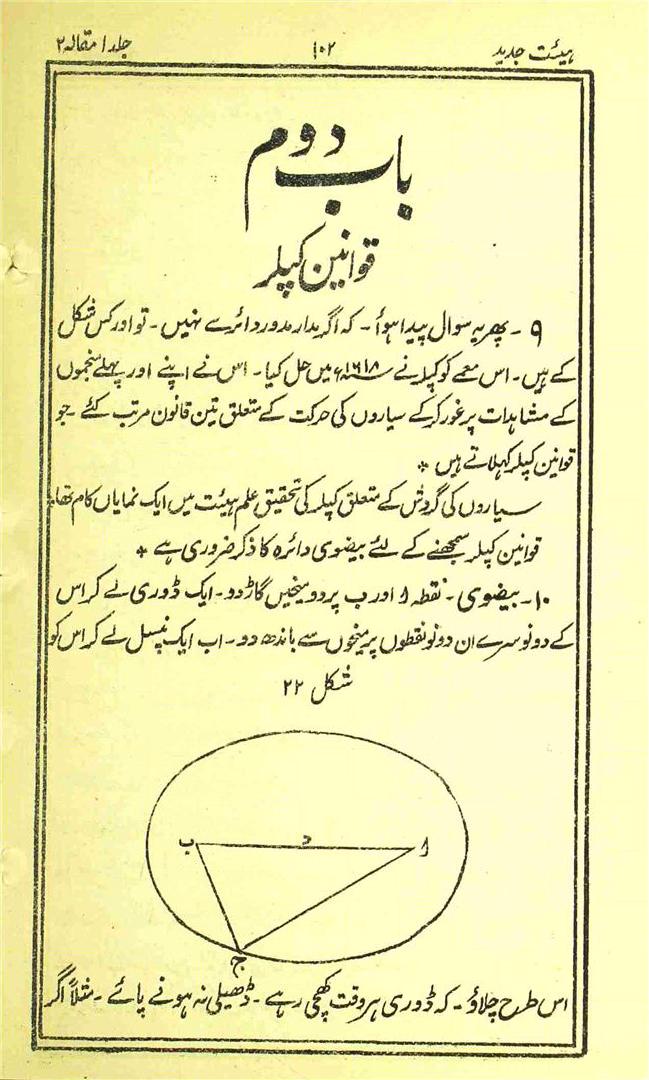 ہیئت جدید ۱۰۲ جلد ۱ مقالہ ۲
باب دوم
قوانین کپلر
۹ ۔ پھر یہ سوال پیدا ہوأ ۔ کہ اگر مدار مدور دائرے نہیں ۔ تو اور کس شکل
کے ہیں ۔ اس معمے کو کپلر نے ۱۶۱۸ء میں حل کیا ۔ اس نے اپنے اور پہلے منجموں
کے مشاہدات پر غور کرکے سیاروں کی حرکت کے متعلق تین قانون مرتب کئے ۔ جو
قوانین کپلر کہلاتے ہیں *
سیاروں کی گردش کے متعلق کپلر کی تحقیق علم ہیئت میں ایک نمایاں کام تھا۔
قوانین کپلر سمجھنے کے لئے بیضوی دائرہ کا ذکر ضروری ہے *
۱۰ ۔ بیضوی ۔ نقطہ ا اور ب پر دو میخیں گاڑ دو ۔ ایک ڈوری لے کر اس
کے دونو سرے ان دونو نقطوں پر میخوں سے باندھ دو ۔ اب ایک پنسل لے کر اس کو
شکل ۲۲
ب د ا
ج
اس طرح چلاؤ ۔ کہ ڈوری ہر وقت کھچی رہے ۔ ڈھیلی نہ ہونے پائے ۔ مثلاً اگر